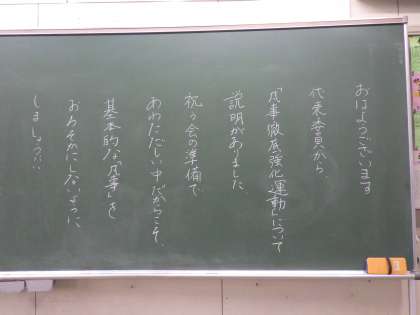 おはようございます
代表委員から、
「凡事徹底強化運動」について
説明がありました。
祝う会の準備で
あわただしい中だからこそ、
基本的な「凡事」を
おろそかにしないように
しましょう!!